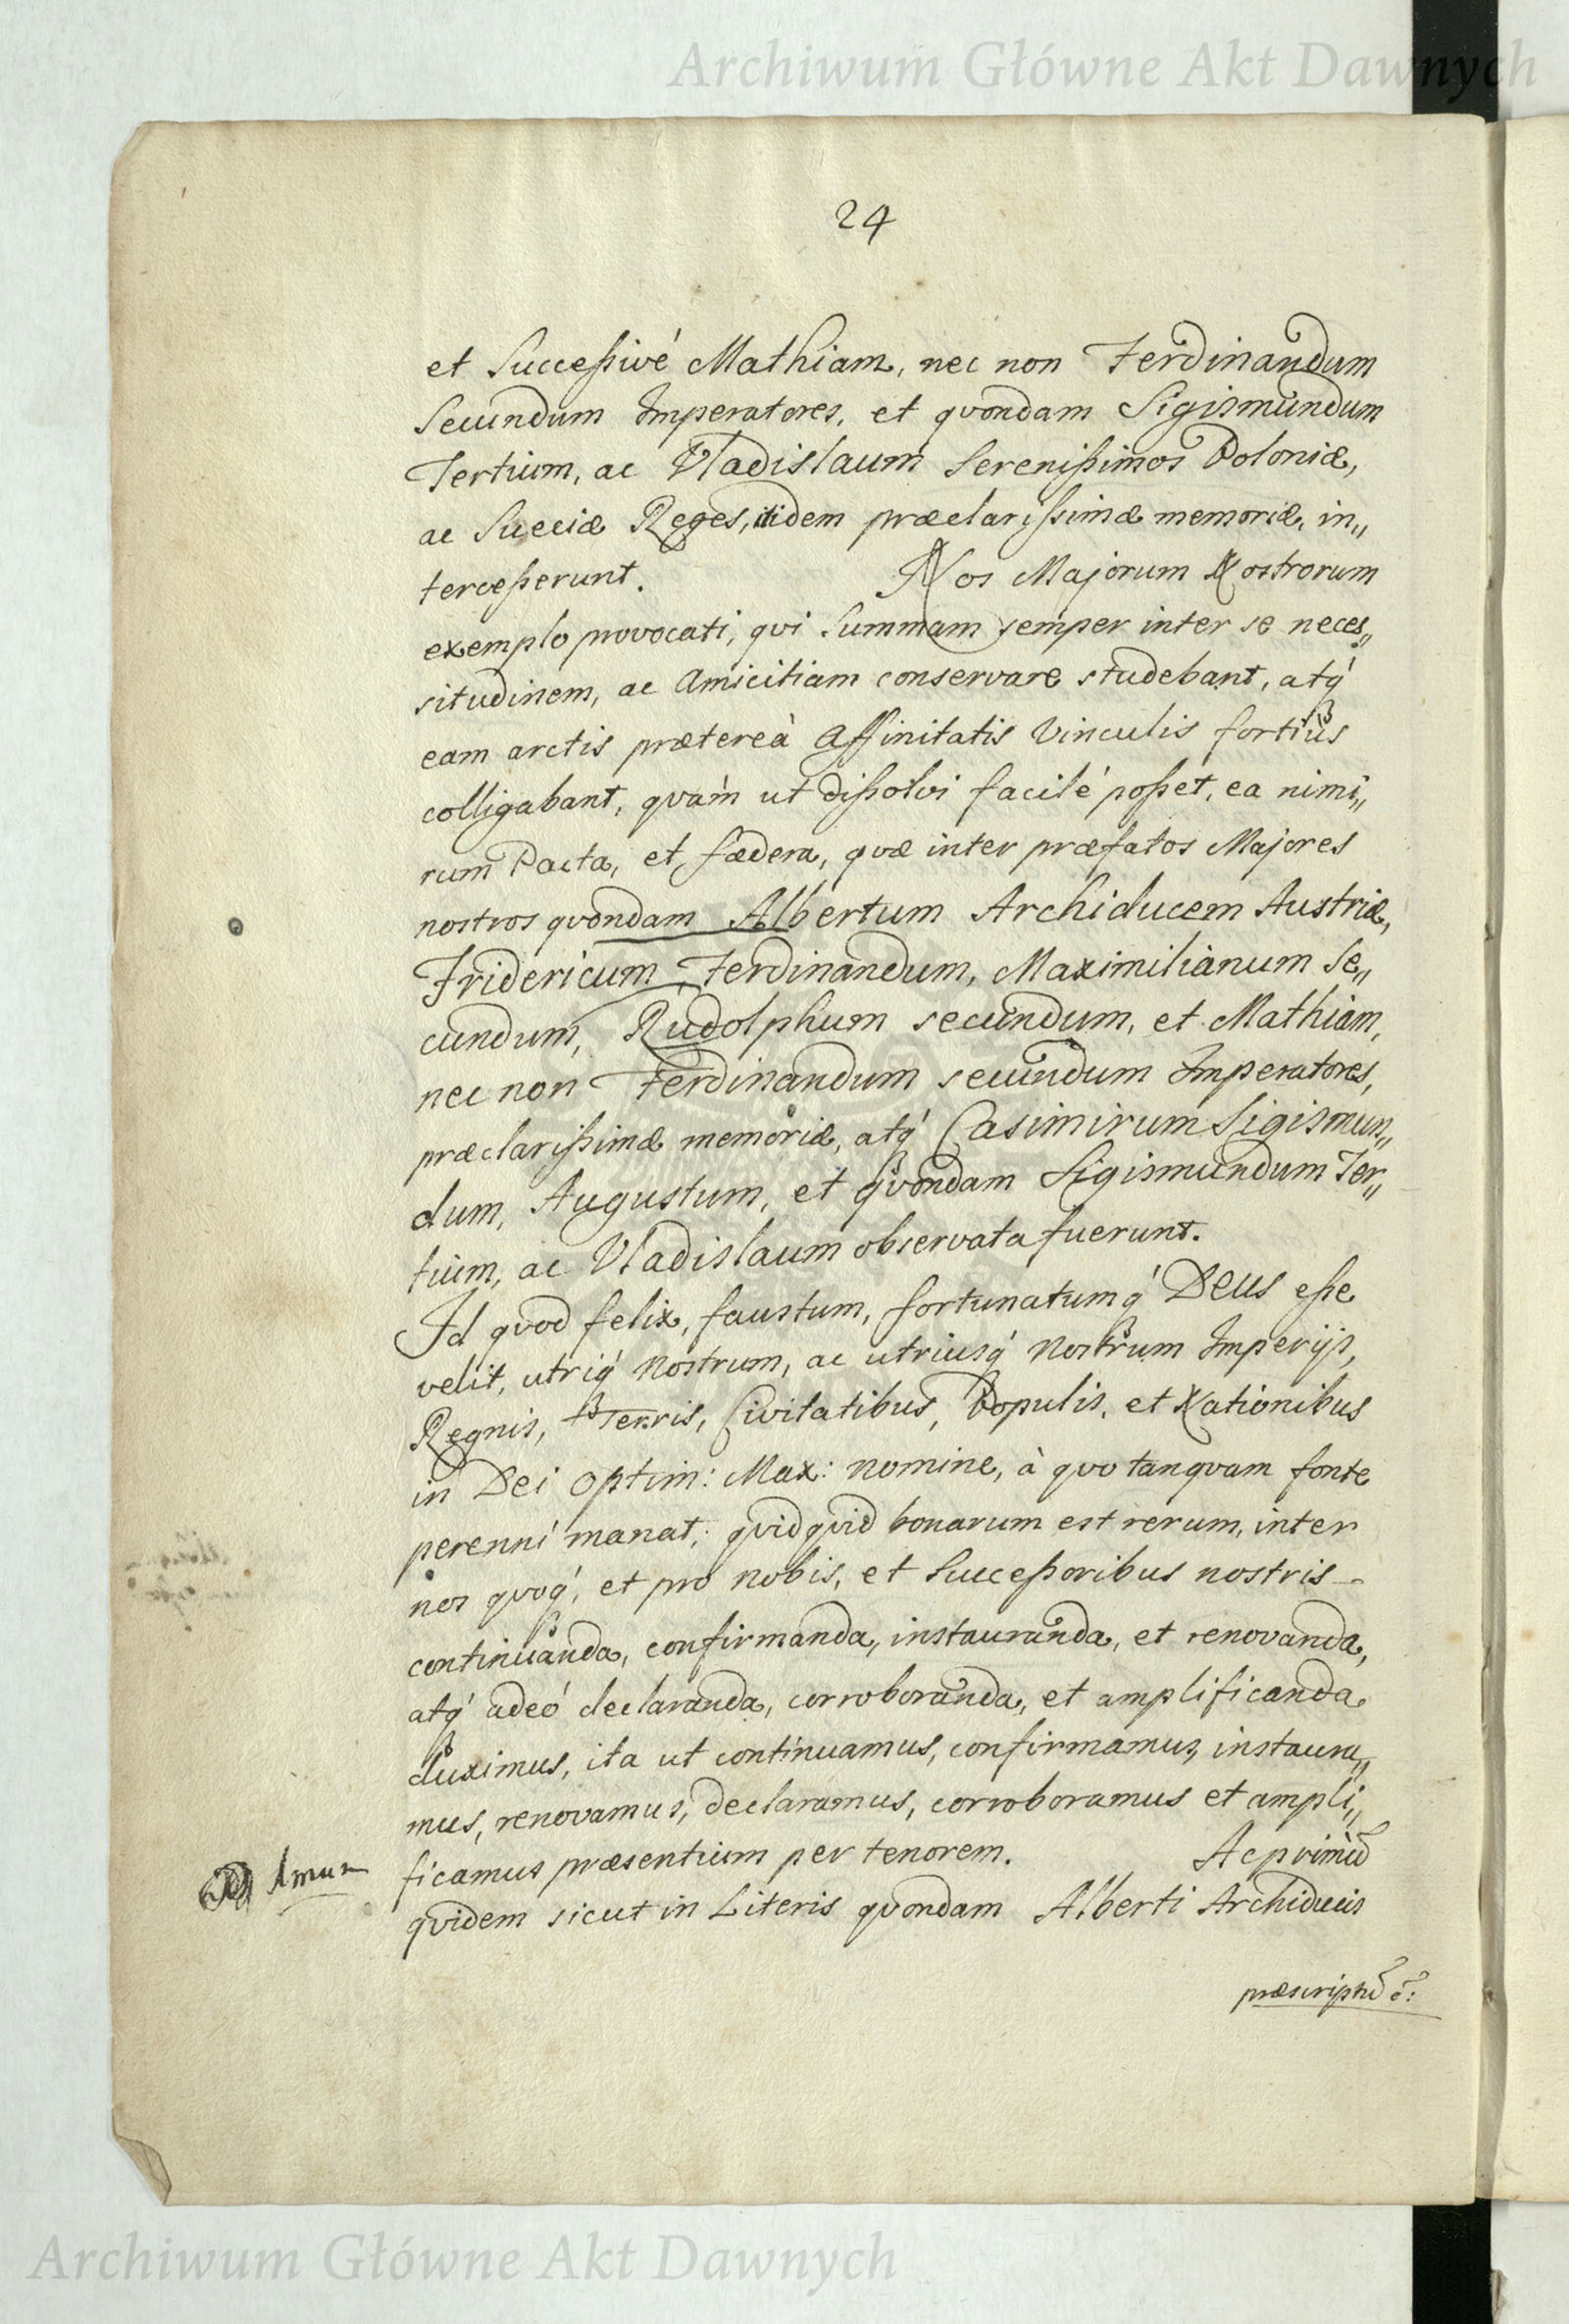 Archiwum Główne Akt Dawnych
24
et Succeßivé Mathiam, nec non Ferdinandum
Secundum Imperatores, et qvondam Sigismundum
Tertium, ac Vladislaum Serenißimos Poloniæ,
ac Sueciæ Reges, itidem præclarißimæ memoriæ, in„
terceßerunt. Nos Majorum Nostrorum
exemplo provocati, qvi Summam semper inter se neces„
situdinem, ac Amicitiam conservare studebant, atq́
eam arctis prætereà Affinitatis Vinculis fortiùs
colligabant, qvám ut dißolvi facilé poßet, ea nimi„
rum Pacta, et fædera, qvæ inter præfatos Majores
nostros qvondam Albertum Archiducem Austriæ,
Fridericum, Ferdinandum, Maximilianum Se„
cundum, Rudolphum secundum, et Mathiam,
nec non Ferdinandum secundum Imperatores,
præclarißimæ memoriæ, atq́ Casimirum Sigismun„
dum, Augustum, et qvondam Sigismundum Ter„
tium, ac Vladislaum observata fuerunt.
Id qvod felix, faustum, fortunatumq́ Deus eße
velit, utriq́ nostrum, ac utriusq́ nostrum Imperijs,
Regnis, Terris, Civitatibus, Populis, et Nationibus
in Dei Optim: Max: nomine, à qvo tanqvam fonte
perenni manat, qvidqvid bonarum est rerum, inter
nos qvoq́, et pro nobis, et Succeßoribus nostris
continuanda, confirmanda, instauranda, et renovanda,
atq́ adeó declaranda, corroboranda, et amplificanda
duximus, ita ut continuamus, confirmamus, instaura„
mus, renovamus, declaramus, corroboramus et ampli„
ficamus præsentium per tenorem. Ac primũ
qvidem sicut in Literis qvondam Alberti Archiducis
præscriptũ ẽ:
Imum
Archiwum Główne Akt Dawnych